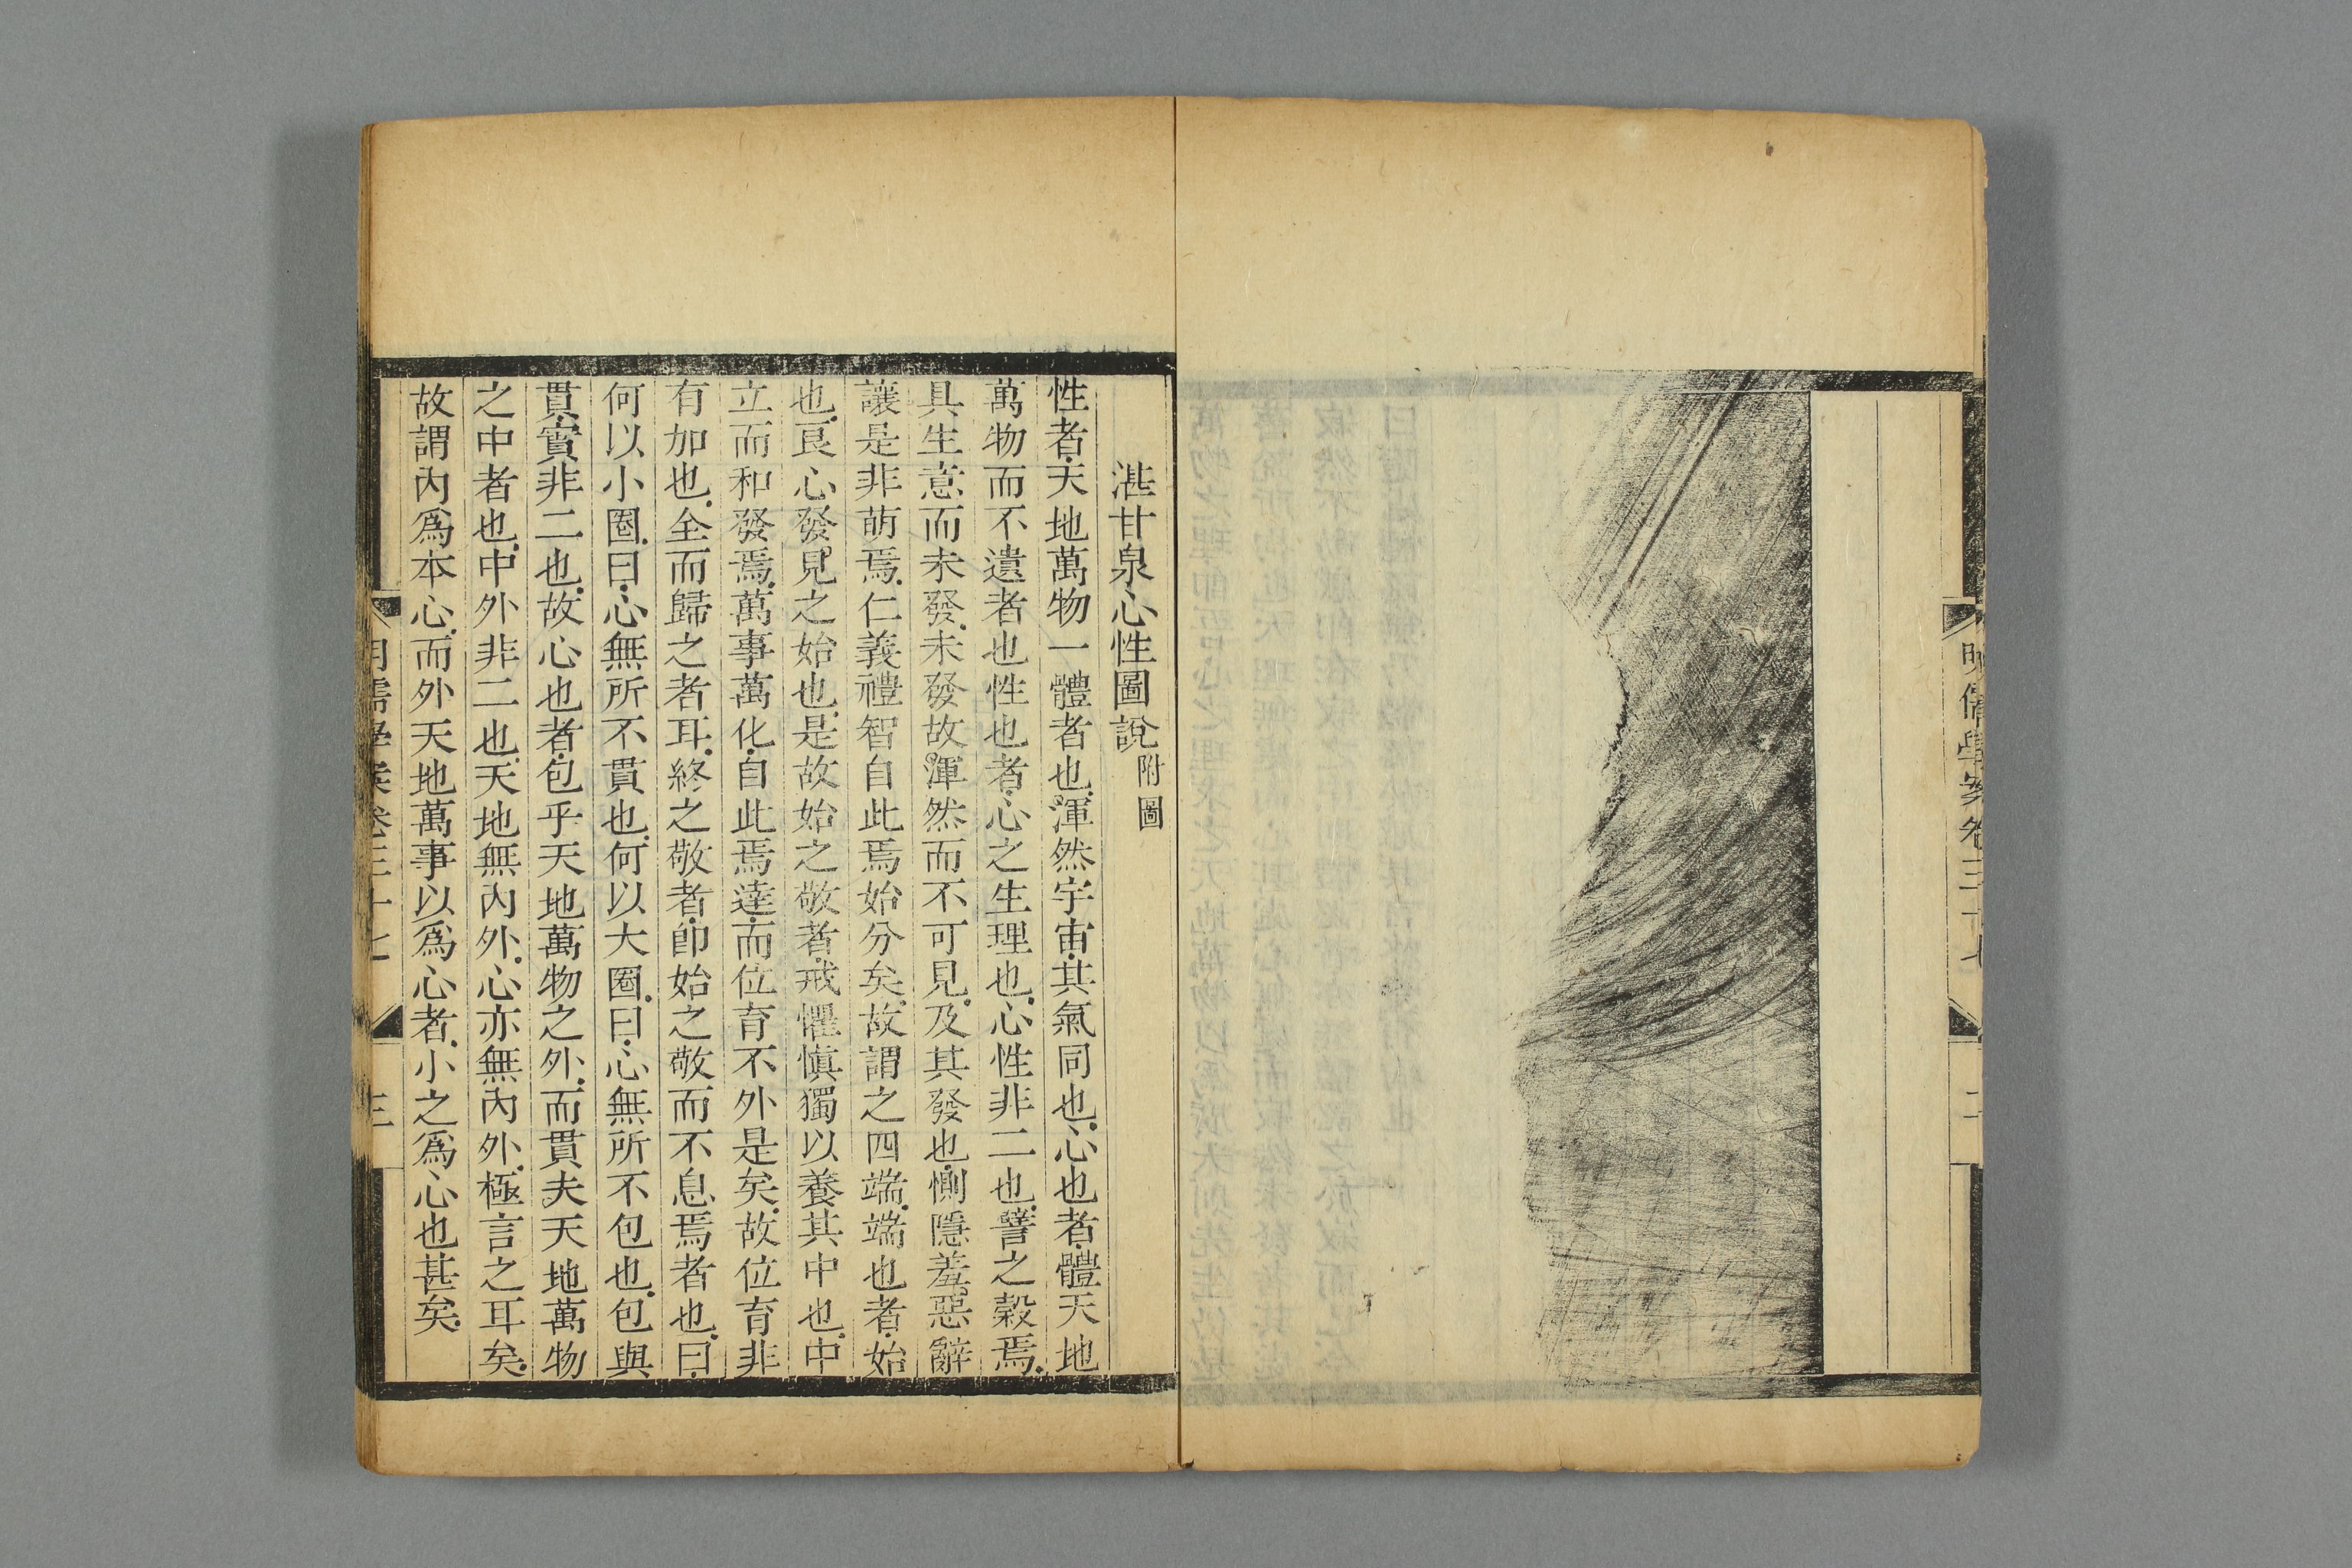 明儒學案卷三十七
二
湛甘泉心性圖說附圖
性者天地萬物一體者也渾然宇宙其氣同也心也者體天地
萬物而不遺者也性也者心之生理也心性非二也譬之榖焉
具生意而未發未發故渾然而不可見及其發也惻隱羞惡辭
讓是非萌焉仁義禮智自此焉始分矣故謂之四端端也者始
也良心發見之始也是故始之敬者戒懼慎獨以養其中也中
立而和發焉萬事萬化自此焉達而位育不外是矣故位育非
有加也全而歸之者耳終之敬者卽始之敬而不息焉者也曰
何以小圈曰心無所不貫也何以大圈曰心無所不包也包與
貫實非二也故心也者包乎天地萬物之外而貫夫天地萬物
之中者也中外非二也天地無內外心亦無內外極言之耳矣
故謂內爲本心而外天地萬事以爲心者小之爲心也甚矣
明儒學案卷三十七
三